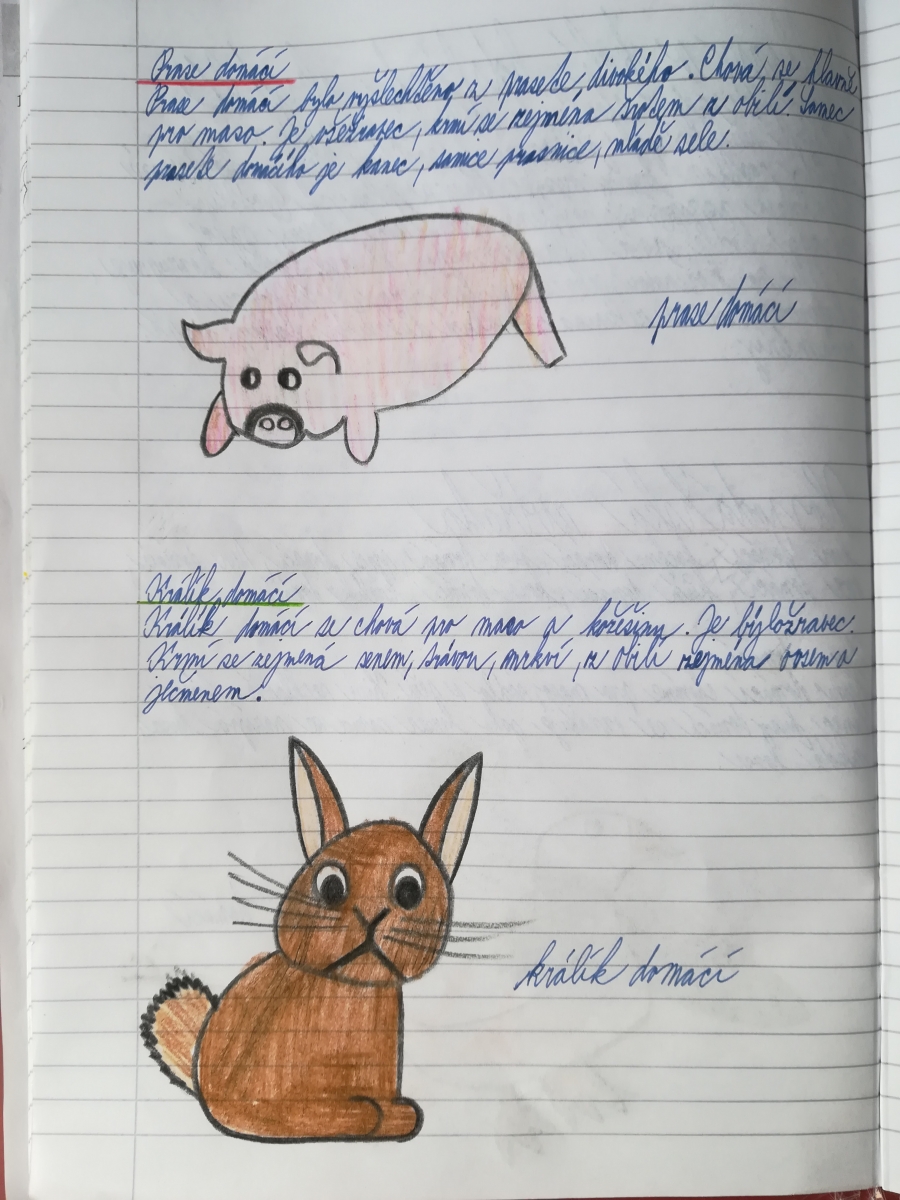 Prase domácí
Prase domácí bylo vyšlechtěno z prasete divokého. Chová se hlavně
pro maso. Je všežravec, krmí se zejména šrotem z obilí. Samec
prasete domácího je kanec, samice prasnice, mládě sele.
prase domácí
Králík domácí
Králík domácí se chová pro maso a kožešinu. Je býložravec.
Krmí se zejména senem, trávou, mrkví, z obilí zejména ovsem a
ječmenem.
králík domácí